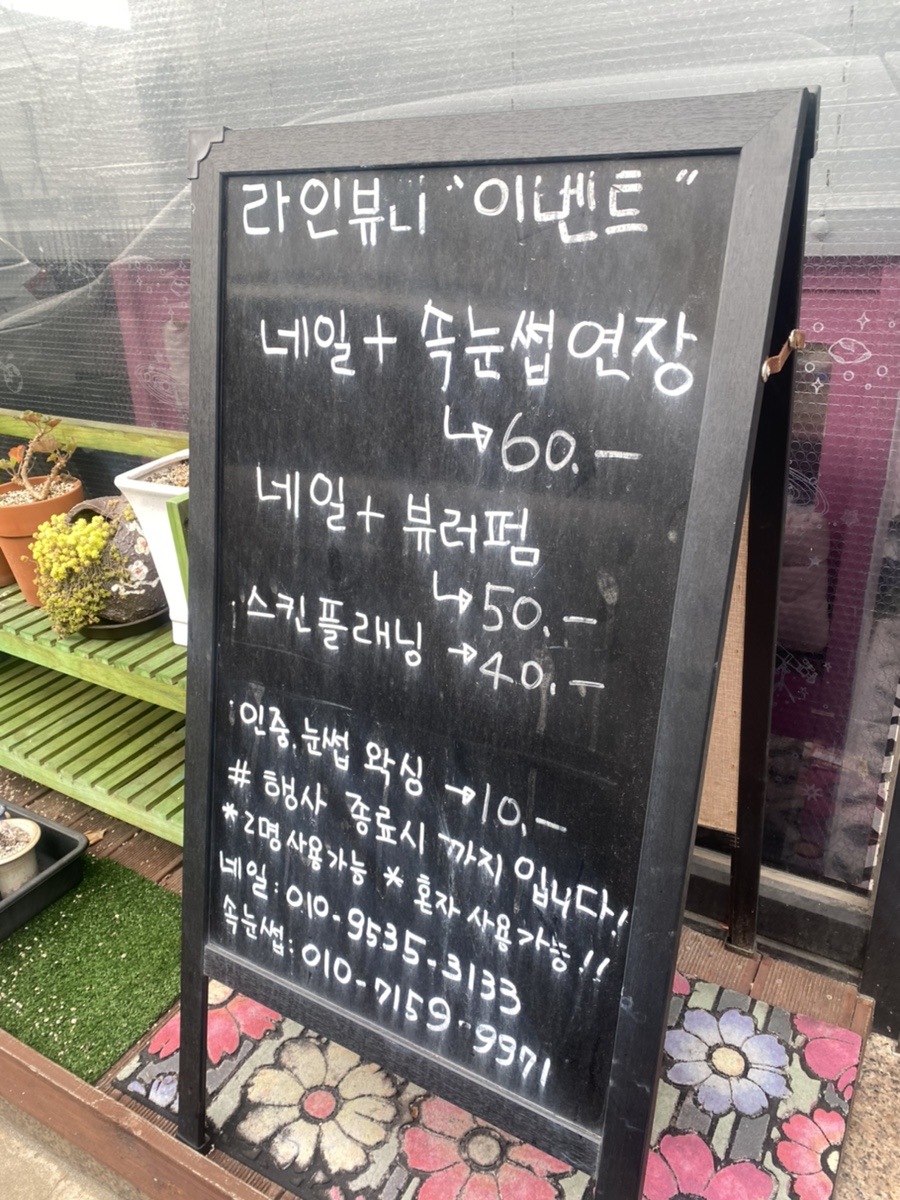 라인뷰니 "이벤트"
네일+ 속눈썹연장
↳60.-
네일+ 뷰러펌
↳50.-
스킨플래닝 →40.-
인중.눈썹 왁싱 →10.-
# 행사 종료시 까지 입니다!
*2명사용가능 * 혼자 사용가능!!
네일: 010-9535-3133
속눈썹: 010-7159-9971